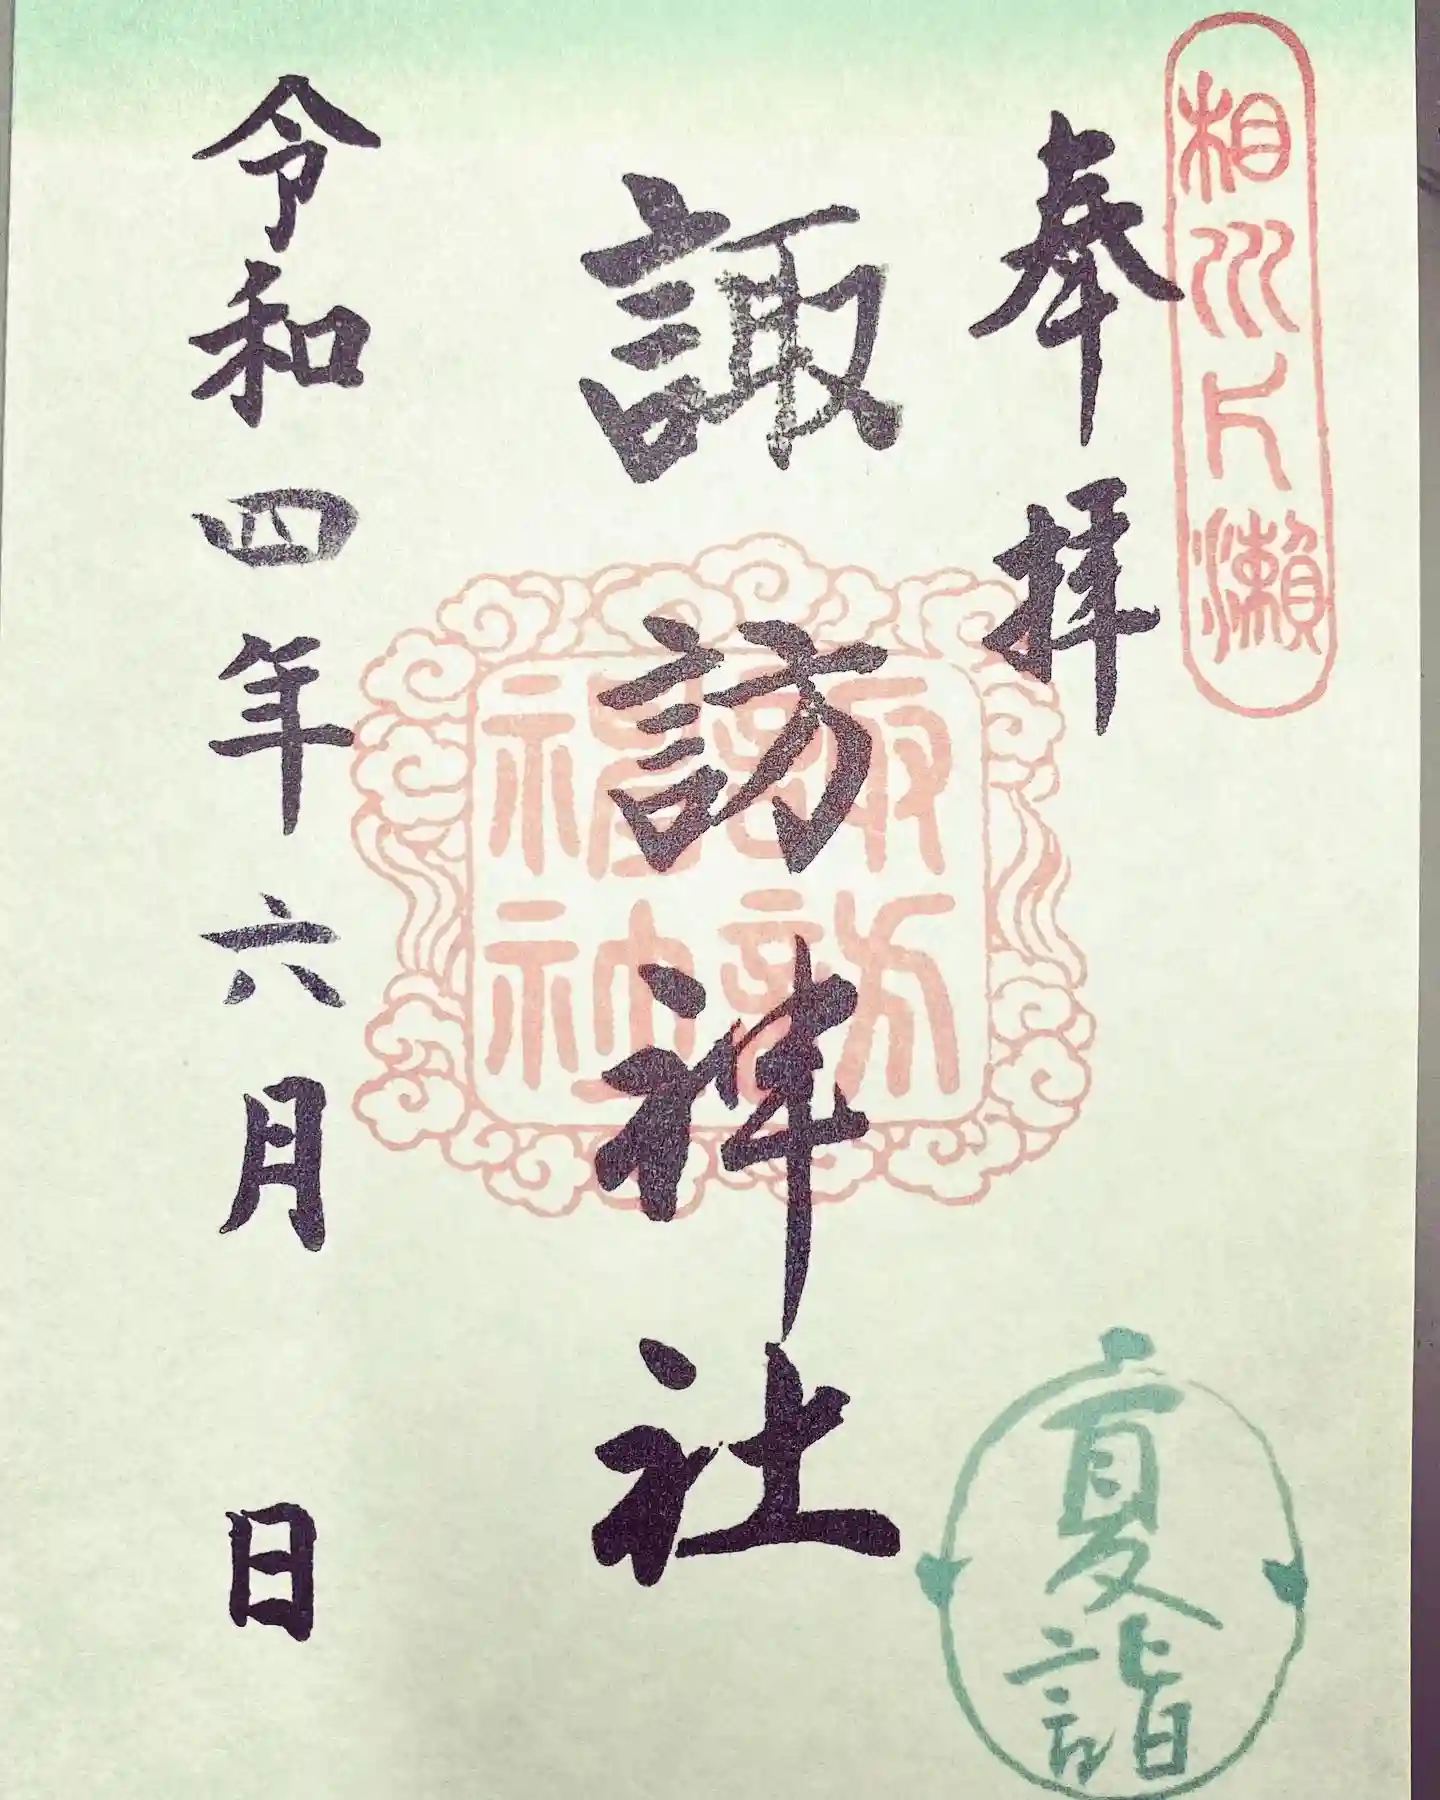 相州一ノ瀬
奉拝
諏訪神社
諏訪神社
令和四年六月 日
夏詣